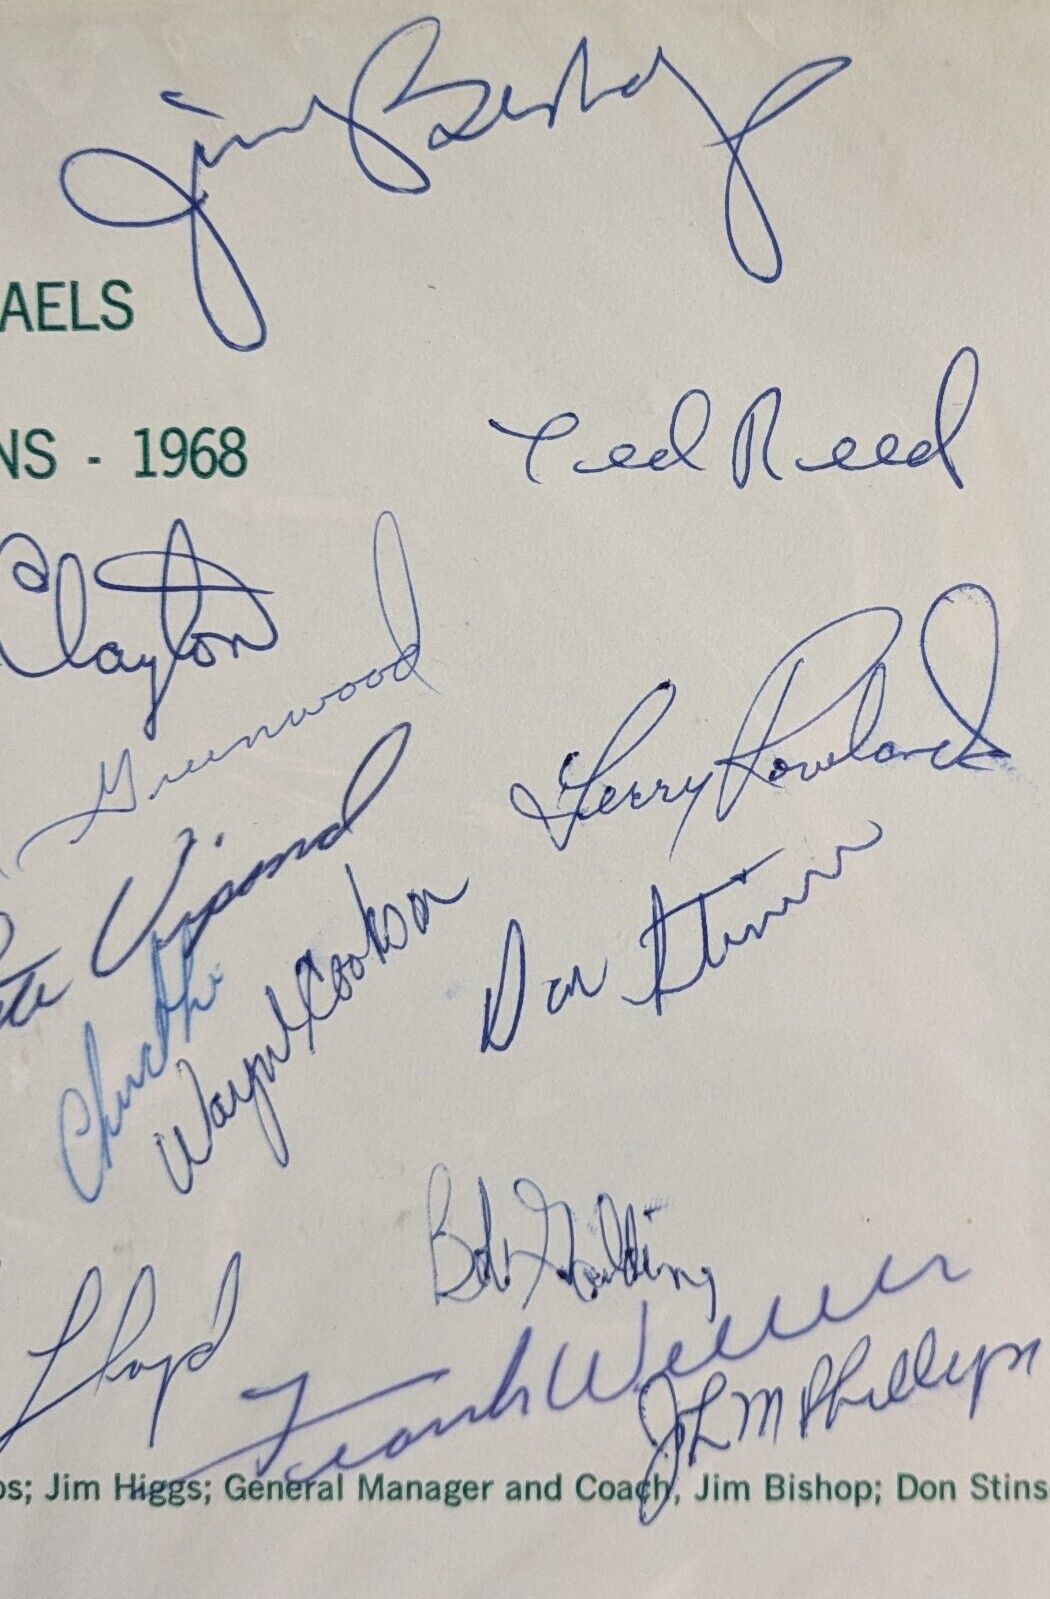 Jim Bishop
AELS
NS - 1968
Ted Reed
Clayton
Greenwood
Terry Rowland
Vipond
Don Stinson
Wayne Cookson
Bob Goulding
Lloyd
Frank Weller
J L M Phillips
os; Jim Higgs; General Manager and Coach, Jim Bishop; Don Stins